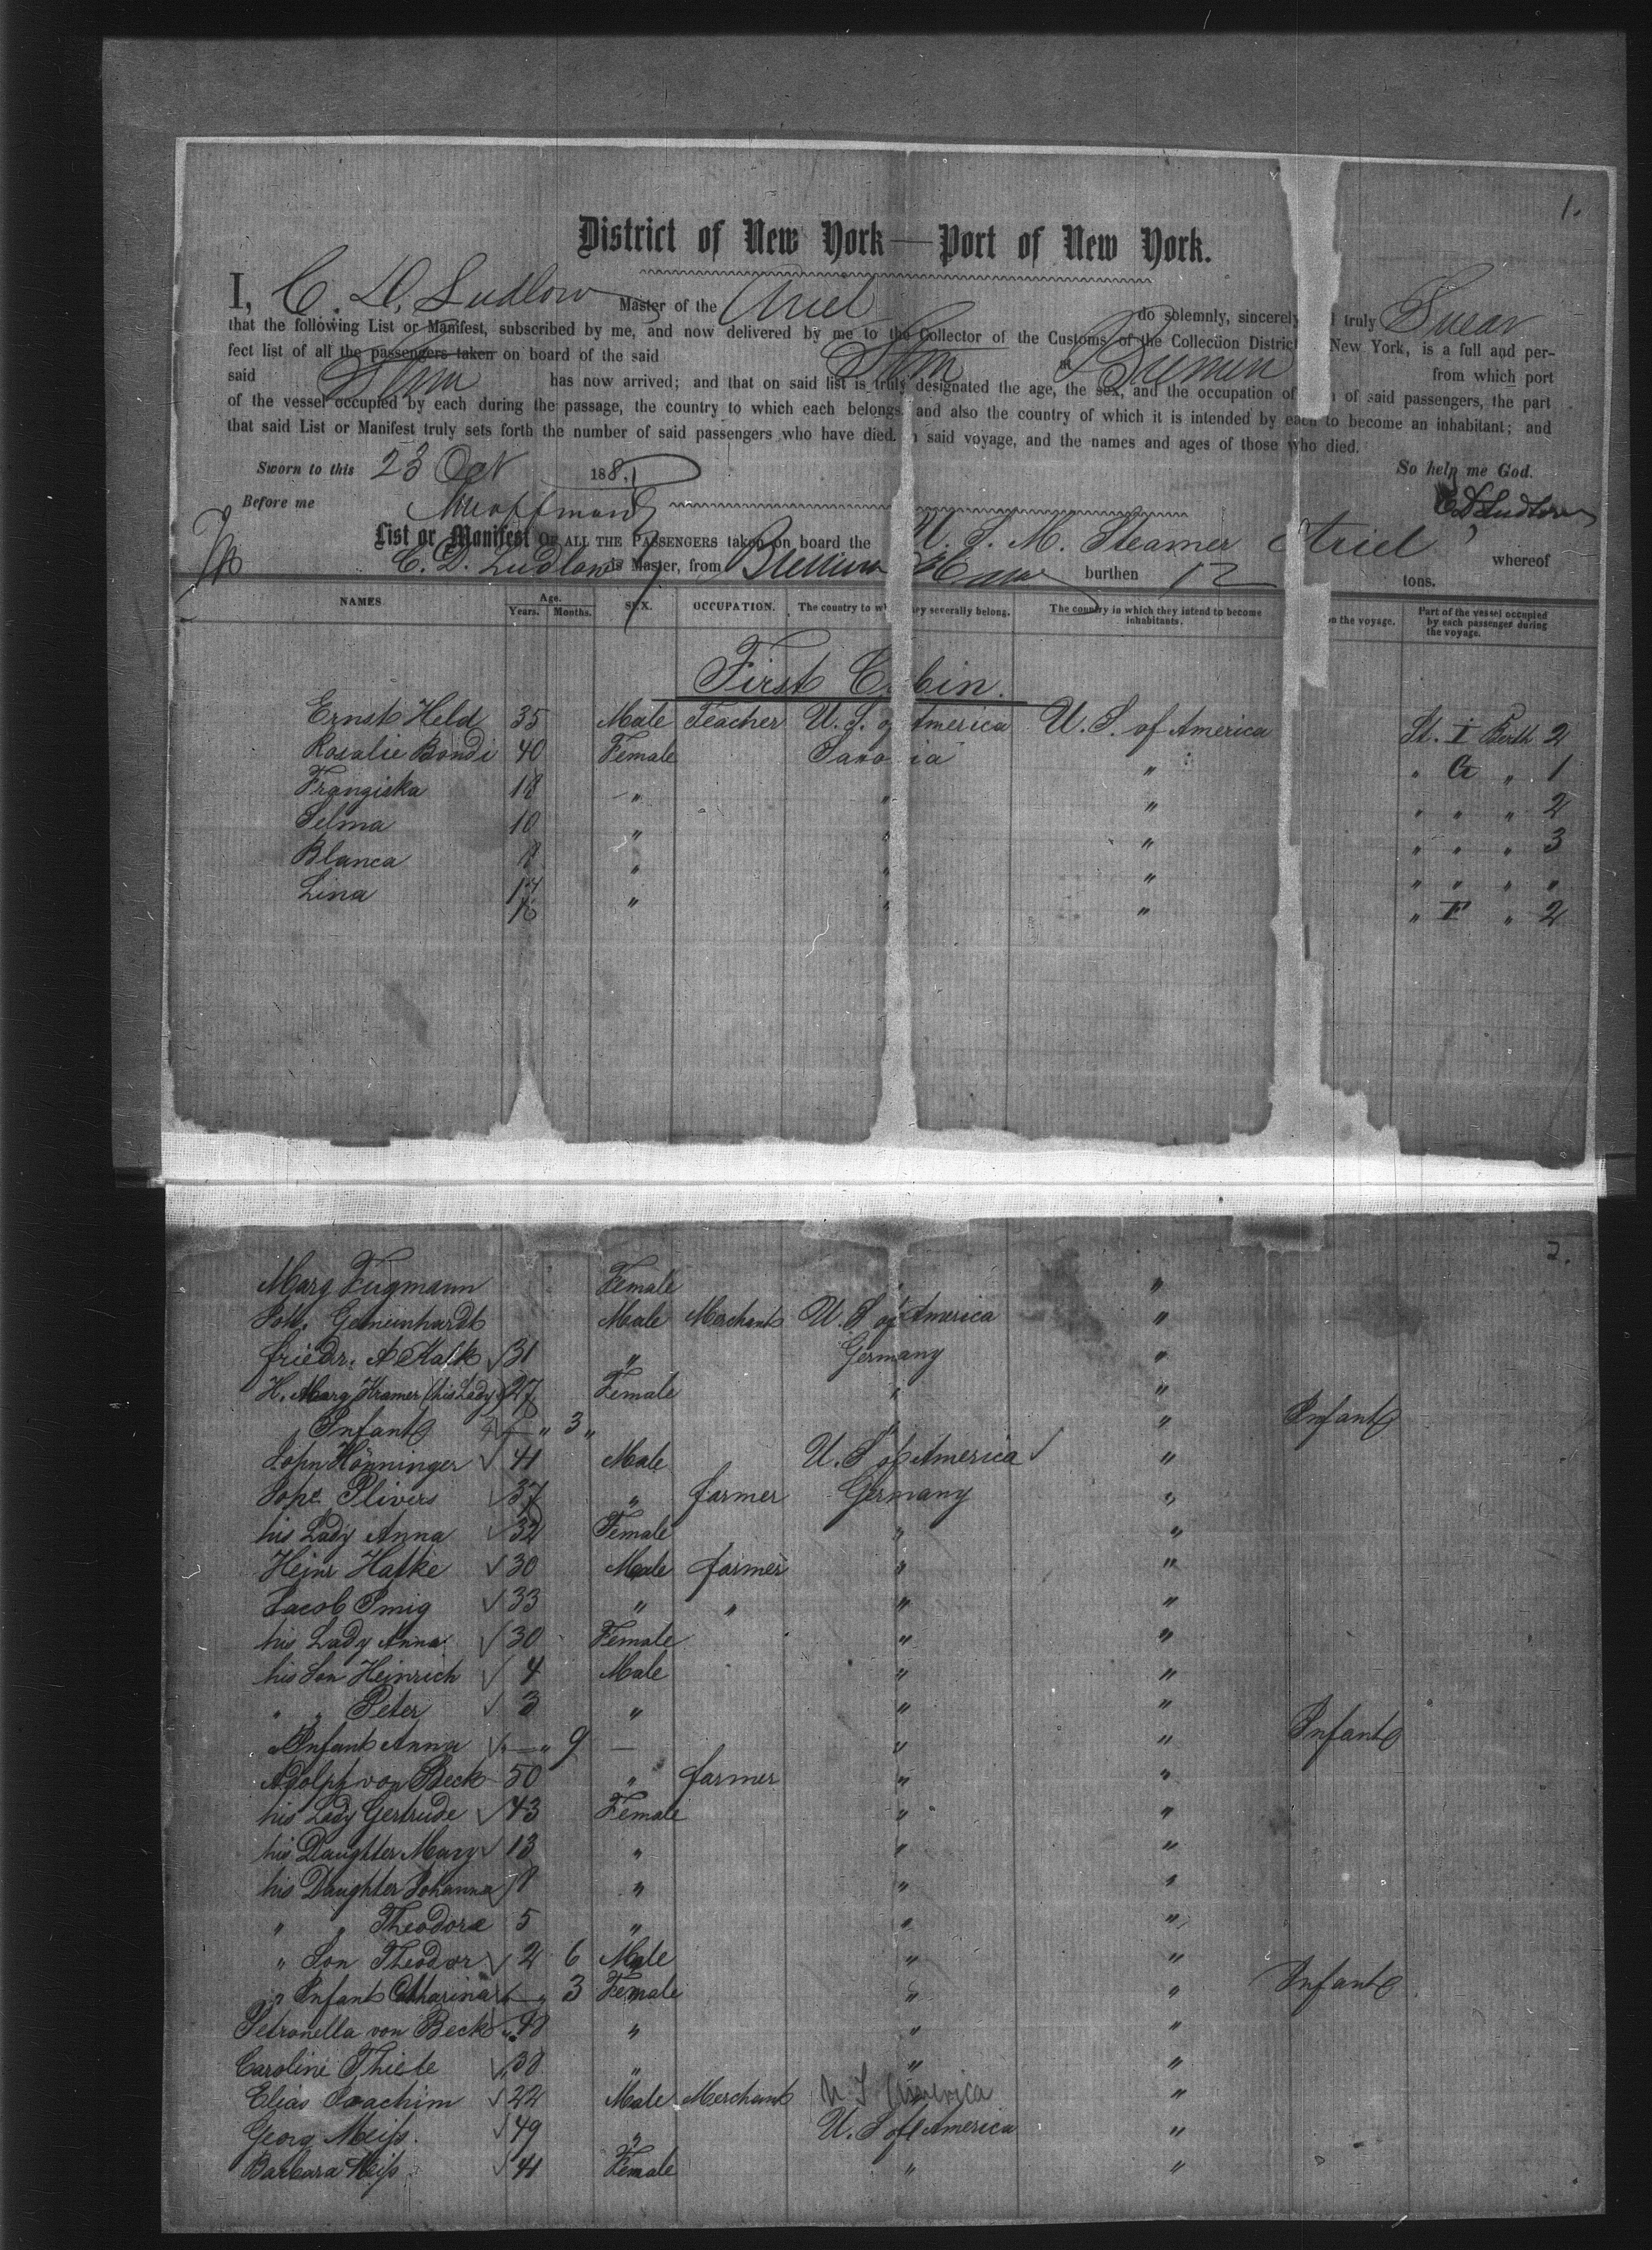 1.
District of New York—Port of New York.
I, C. D. Ludlow Master of the Ariel do solemnly, sincerely truly Swear
that the following List or Manifest, subscribed by me, and now delivered by me to the Collector of the Customs of the Collection Distric New York, is a full and per-
fect list of all the passengers taken on board of the said Stm at Bremen from which port
said Stm has now arrived; and that on said list is truly designated the age, the sex, and the occupation of of said passengers, the part
of the vessel occupied by each during the passage, the country to which each belongs, and also the country of which it is intended by each to become an inhabitant; and
that said List or Manifest truly sets forth the number of said passengers who have died said voyage, and the names and ages of those who died.
Sworn to this 23 Oct 188 So help me God.
Before me C D Ludlow
List or Manifest OF ALL THE PASSENGERS taken on board the U. S. M. Steamer Ariel whereof
C. D. Ludlow is Master, from burthen tons.
NAMES Age. Years. Months. SEX. OCCUPATION. The country to wh ey severally belong. The country in which they intend to become inhabitants. n the voyage. Part of the vessel occupied by each passenger during the voyage.
First C bin.
Ernst Held 35 Male Teacher U. S. of America U. S. of America St. I Berth 2
Rosalie Bondi 40 Female Saxo ia " " G " 1
Franziska 18 " " " " " " 2
Selma 10 " " " " " " 3
Blanca 8 " " " " " " "
Lina 17 " " " " F " 2
16
2.
Marg Fugmann Female " "
Joh. Gemeinhardt Male Merchant U. S of America "
Friedr. A Kalk 31 " Germany "
H. Marg Kramer (his Lady) 27 Female " "
" Infant " 3 " " " Infant
John Hönninger 41 Male U. S of America "
Joh. Plivers 37 " farmer Germany "
his Lady Anna 32 Female " "
Heinr Hatke 30 Male farmer " "
Jacob Smig 33 " " " "
his Lady Anna 30 Female " "
his Son Heinrich 4 Male " "
" " Peter 3 " " "
Infant Anna — " 9 — " " Infant
Adolph von Beck 50 " farmer " "
his Lady Gertrude 43 Female " "
his Daughter Mary 13 " " "
his Daughter Johanna 8 " " "
" " Theodora 5 " " "
" Son Theodor 2 6 Male " "
" Infant Catharina — " 3 Female " " Infant
Petronella von Beck 48 " " "
Caroline Thiele 38 " " "
Elias Joachim 22 Male Merchant U S America "
Georg Meiß. 49 " U. S of America "
Barbara Meiß 41 Female " "